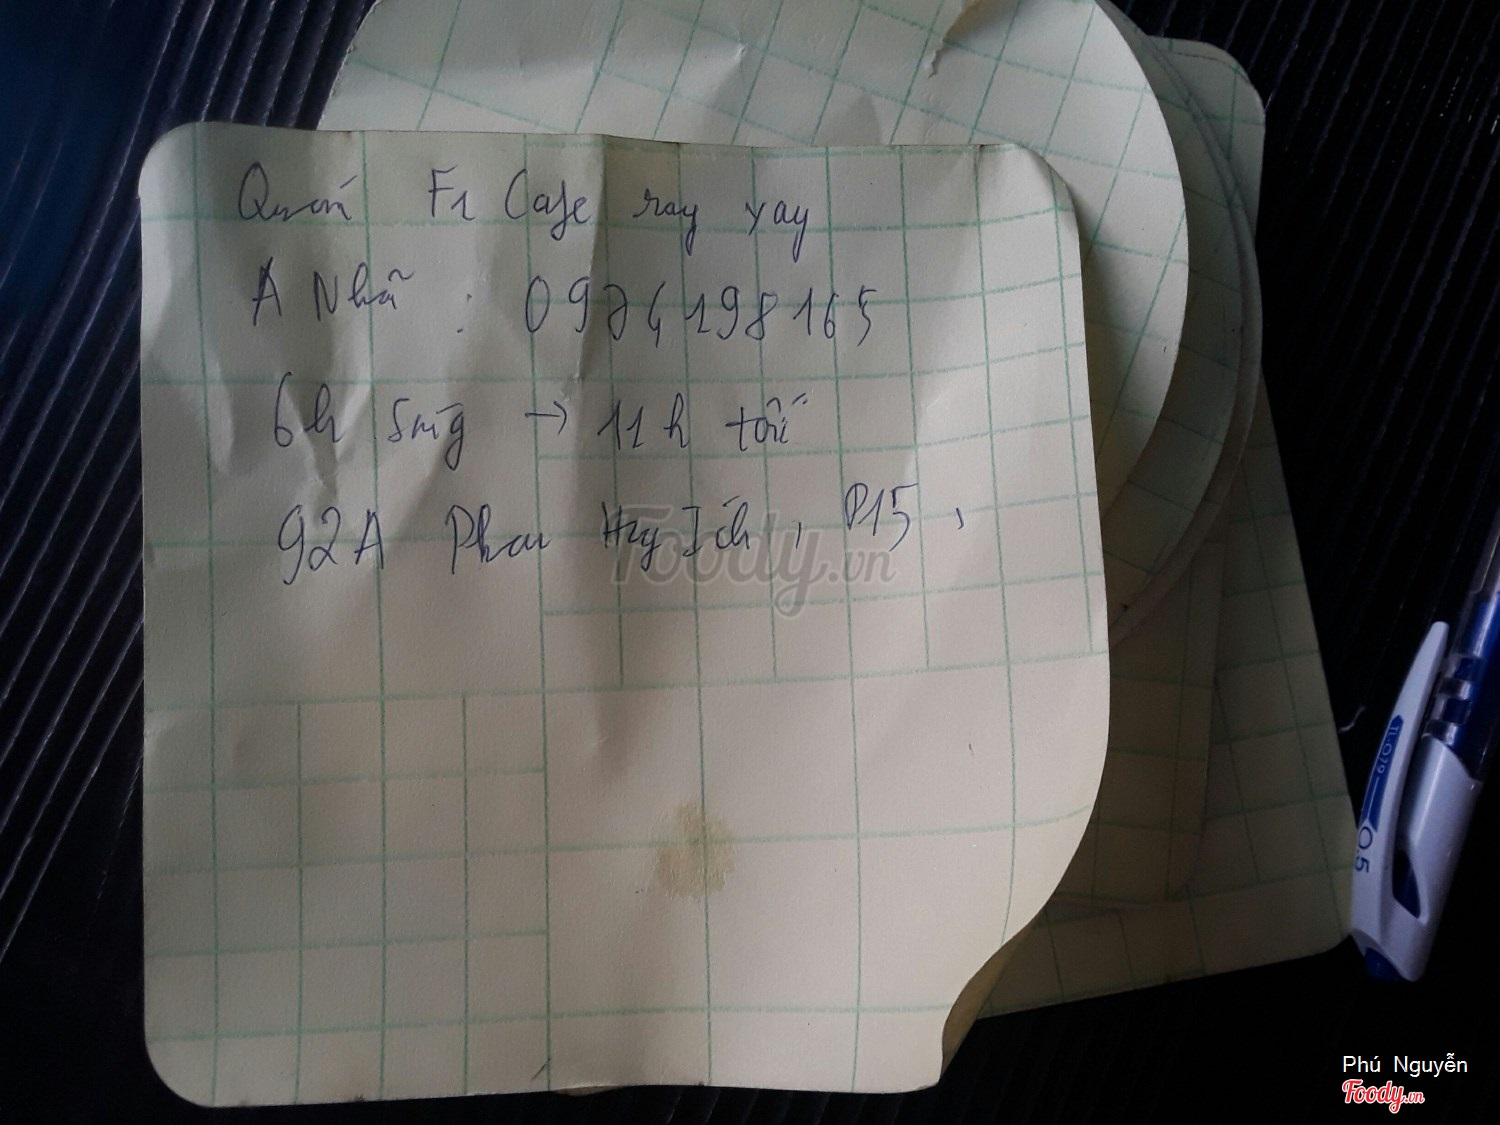 Quán F1 Cafe xay xay
A Nhã : 0974198165
6h sáng → 11h tối
92A Phan Huy Ích , P15 ,
Foody.vn
TL-079
0.5
Phú Nguyễn
Foody.vn